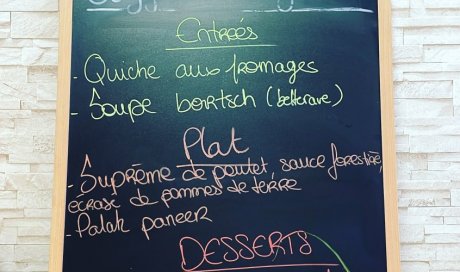 Entrées
- Quiche aux fromages
- Soupe bortsch (betterave)
Plat
- Suprême de poulet, sauce forestière,
écrasé de pommes de terre
- Palak paneer
DESSERTS